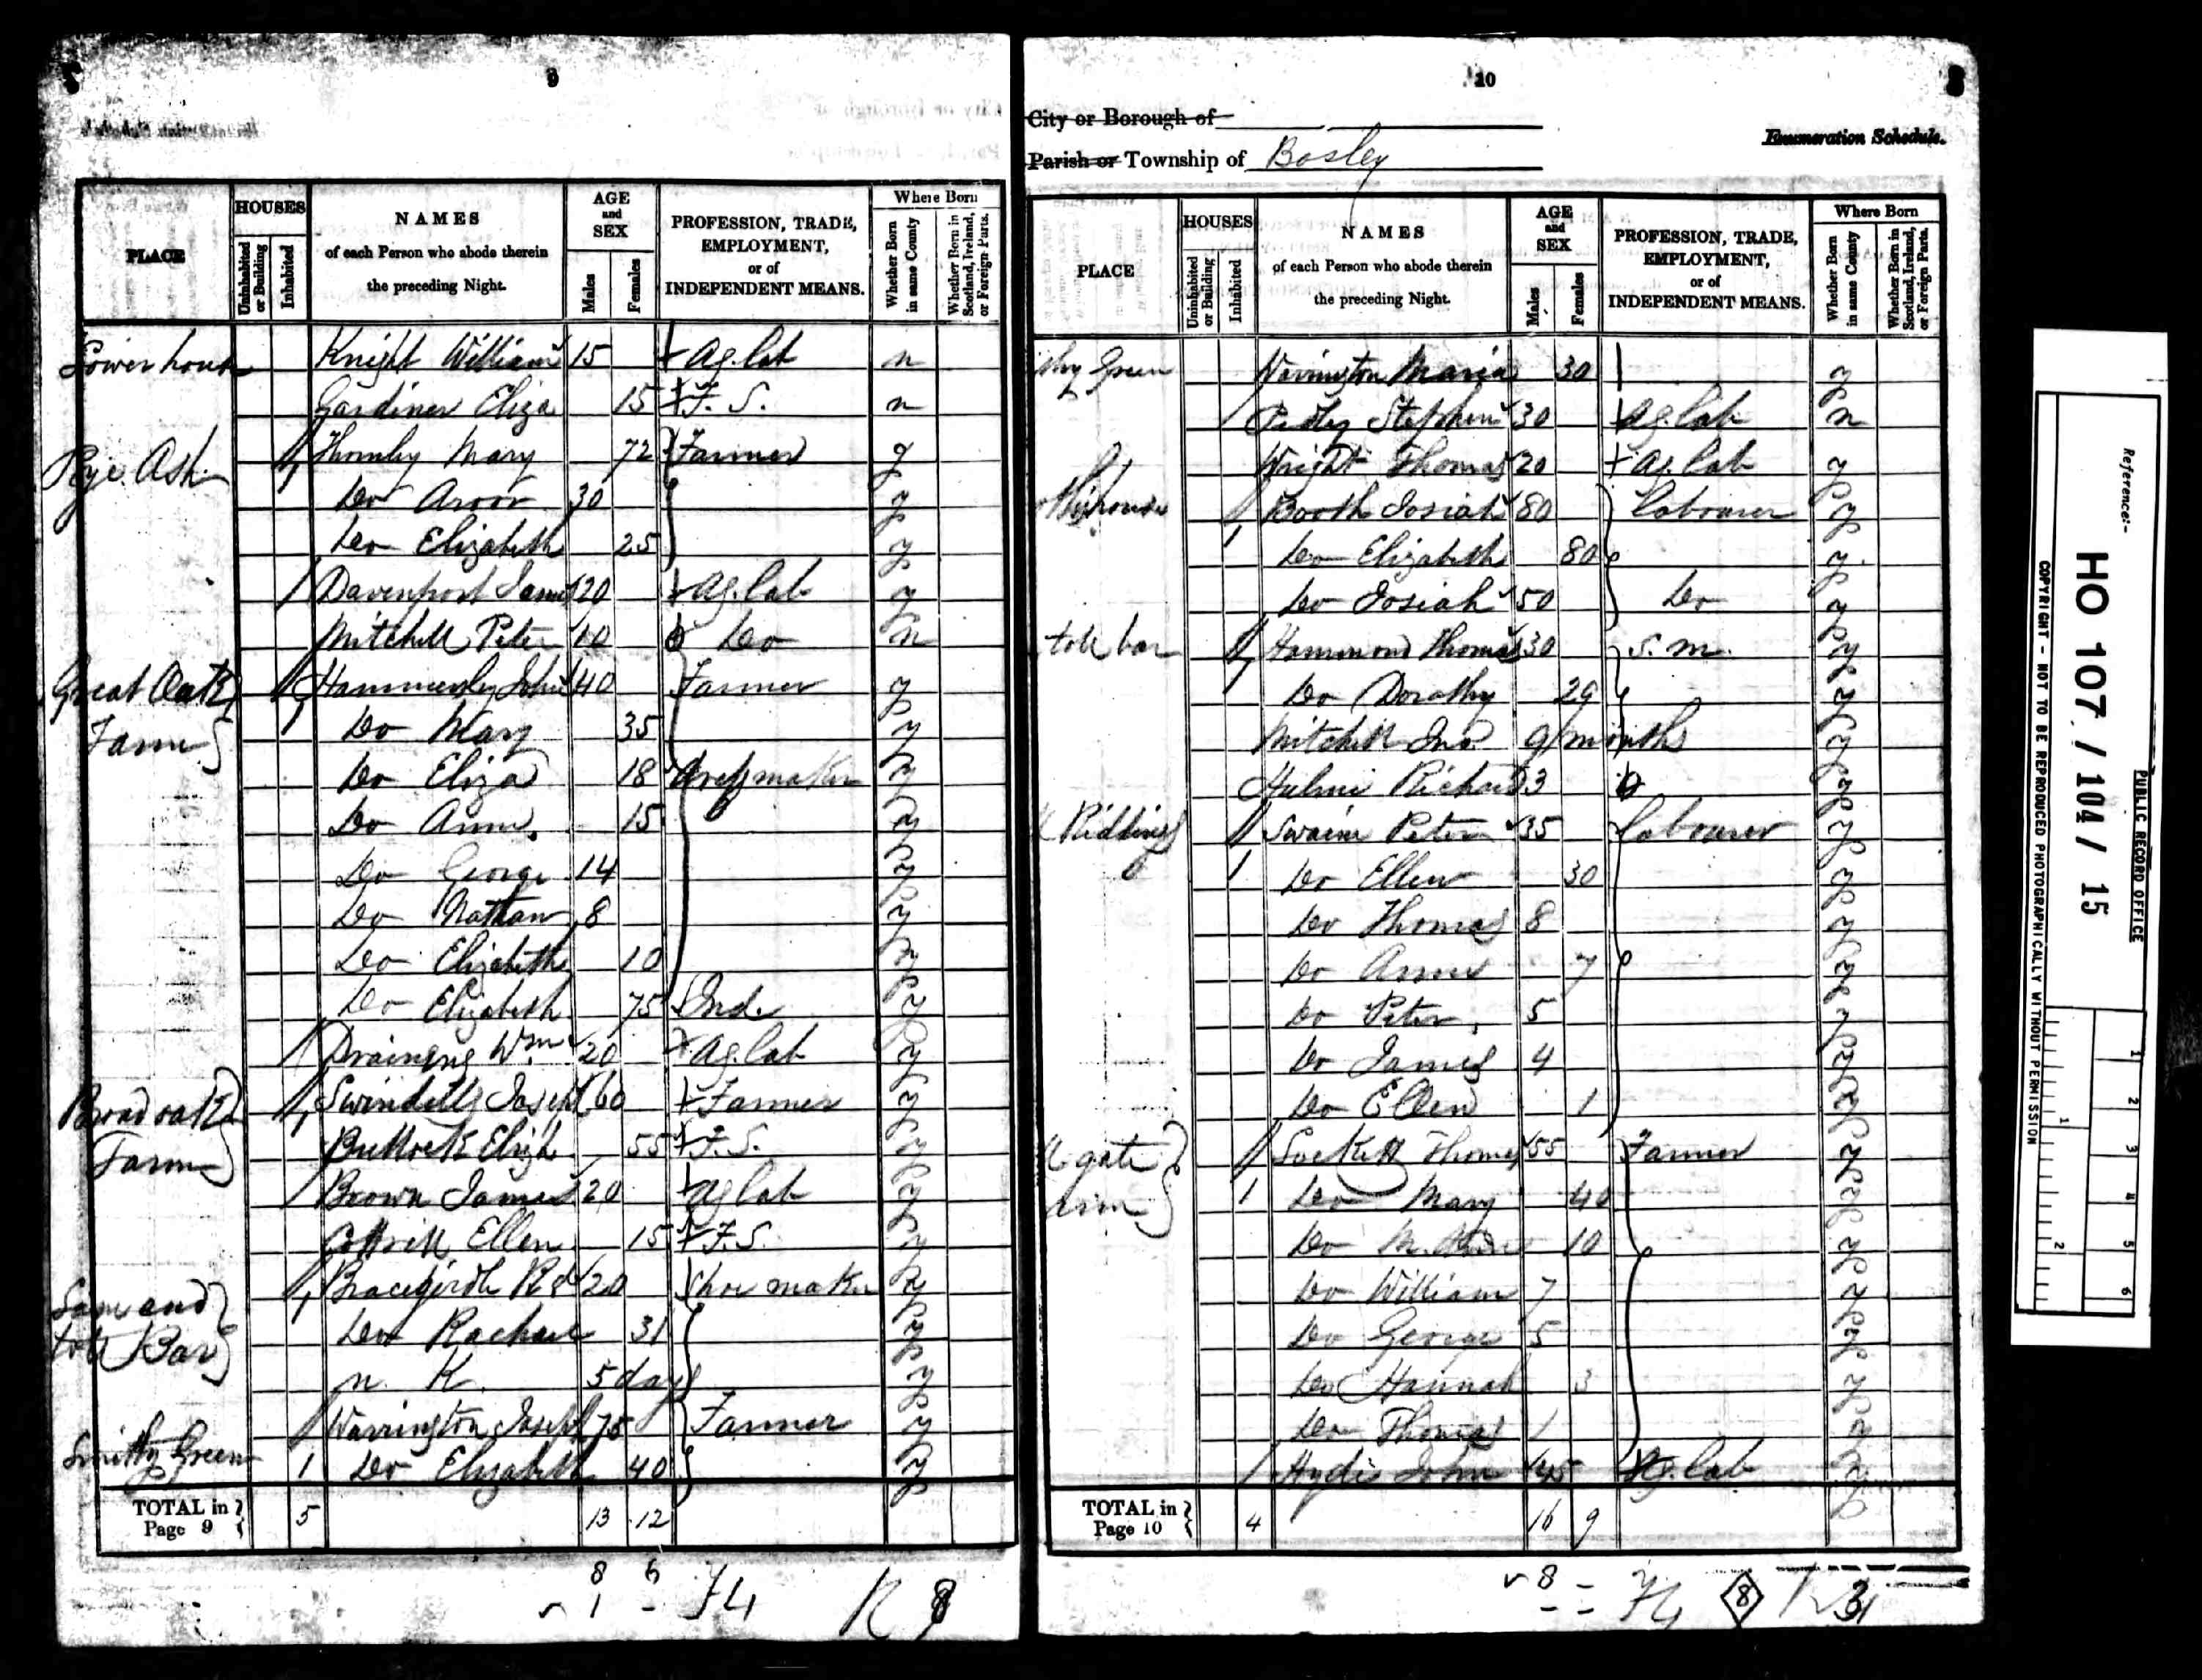 9
PLACE
HOUSES
Uninhabited or Building
Inhabited
NAMES
of each Person who abode therein
the preceding Night.
AGE
and
SEX
Males
Females
PROFESSION, TRADE,
EMPLOYMENT,
or of
INDEPENDENT MEANS.
Where Born
Whether Born in same County
Whether Born in Scotland, Ireland, or Foreign Parts.
Lower house Knight William 15 Ag. Lab n
Gardiner Eliza 15 F. S. n
Pye Ash 1 Thornley Mary 72 Farmer y
Do Aroon 30 y
Do Elizabeth 25 y
Davenport James 20 Ag. Lab y
Mitchell Peter 10 Do n
Great Oak 1 Hammersley John 40 Farmer y
Farm Do Mary 35 y
Do Eliza 18 Dressmaker y
Do Ann 15 y
Do George 14 y
Do Nathan 8 y
Do Elizabeth 10 y
Do Elizabeth 75 Ind. y
Wm 20 Ag. Lab y
Broad oak 1 Swindells Joseph 60 Farmer y
Farm Elizh 55 F. S. y
Brown James 20 Ag Lab y
Cottrill Ellen 15 F. S. y
Lane end 1 Bracegirdle Rd 20 Shoe maker y
toll Bar Do Rachael 31 y
n. K. 5 days y
Warrington Joseph 75 Farmer y
Smithy Green 1 Do Elizabeth 40 y
TOTAL in Page 9 5 13 12
8 6
1 -
10
City or Borough of
Parish or Township of Bosley
Enumeration Schedule.
PLACE
HOUSES
Uninhabited or Building
Inhabited
NAMES
of each Person who abode therein
the preceding Night.
AGE
and
SEX
Males
Females
PROFESSION, TRADE,
EMPLOYMENT,
or of
INDEPENDENT MEANS.
Where Born
Whether Born in same County
Whether Born in Scotland, Ireland, or Foreign Parts.
thy Green Warrington Maria 30 y
Stephen 30 Ag. Lab n
Wright Thomas 20 Ag. Lab y
Booth Josiah 80 Labourer y
1 Do Elizabeth 80 y
Do Josiah 50 Do y
toll bar 1 Hammond Thomas 30 S. M. y
Do Dorothy 29 y
Mitchell Jno. 9 months y
Hulme Richard 3 y
Riddings Swain Peter 35 Labourer y
1 Do Ellen 30 y
Do Thomas 8 y
Do Anne 7 y
Do Peter 5 y
Do James 4 y
Do Ellen 1 y
gate Sockett Thomas 55 Farmer y
arm 1 Do Mary 40 y
Do M. Ann 10 y
Do William 7 y
Do George 5 y
Do Hannah 3 y
Do Thomas 1 y
Hyde John 45 Ag. Lab y
TOTAL in Page 10 4 16 9
8
8
Reference:-
HO 107 / 104 / 15
PUBLIC RECORD OFFICE
COPYRIGHT - NOT TO BE REPRODUCED PHOTOGRAPHICALLY WITHOUT PERMISSION
1 2 3 4 5 6
1 2